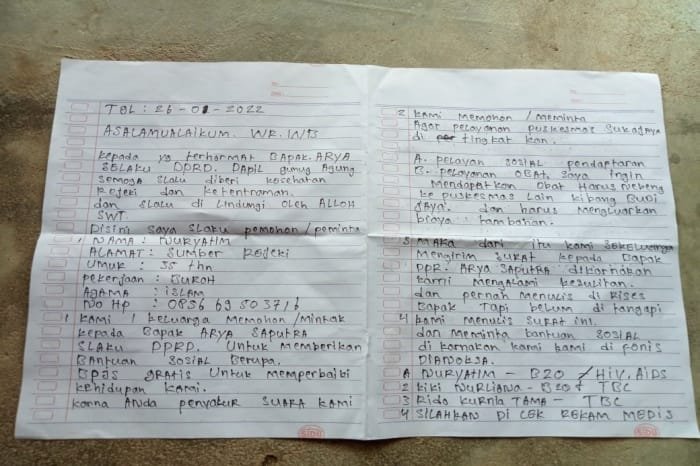 TGL : 26-01-2022
ASALAMUALAIKUM. WR. WB
kepada yg terhormat BAPAK. ARYA
SELAKU DPRD. DAPIL gunug Agung
semoga slalu diberi kesehatan
Rejeki dan ketentraman.
dan slalu di Lindungi oleh ALLOH
SWT.
Disini saya slaku pemohon/peminta
1 NAMA : NURYATIM
ALAMAT : SUMBER REJEKI
UMUR : 35 thn
pekerjaan : BUROH
AGAMA : iSLAM
NO HP : 0856 69 50 37 16
1 KAMI 1 keluarga Memohon/Mintak
kepada BAPAK ARYA SAPUTRA
SLAKU DPRD. Untuk Memberikan
Bantuan SOSIAL Berupa.
BPJS GRATIS Untuk Memperbaiki
kehidupan kami.
karna ANDA penyalur SUARA KAMI
2 KAMI MEMOHON/MEMINTA
Agar pelayanan puskesmas Sukajaya
di tingkat kan.
A. pelayan SOSIAL pendaptaran
B. pelayanan OBAT. Saya ingin
Mendapatkan Obat Harus Nebeng
ke puskesmas Lain kibang BUDI
JAYA. dan harus Mengluarkan
biaya : tambahan.
3 MAKA dari itu kami sekeluarga
Mengirim SURAT kepada Bapak
DPR. ARYA SAPUTRA. dikarnakan
kami mengalami kesulitan.
dan pernah Menulis di Rises
Bapak Tapi belum di tangapi
4 kami menulis surat ini.
dan meminta bantuan SOSIAL
di karnakan kami kami di fonis
DIANOKSA.
A NURYATIM - B20 / HIV, AIDS
2 KIKI NURLIANA - B20 + TBC
3 Rido KURNIA TAMA - TBC
4 SILAHKAN DI CEK REKAM MEDIS